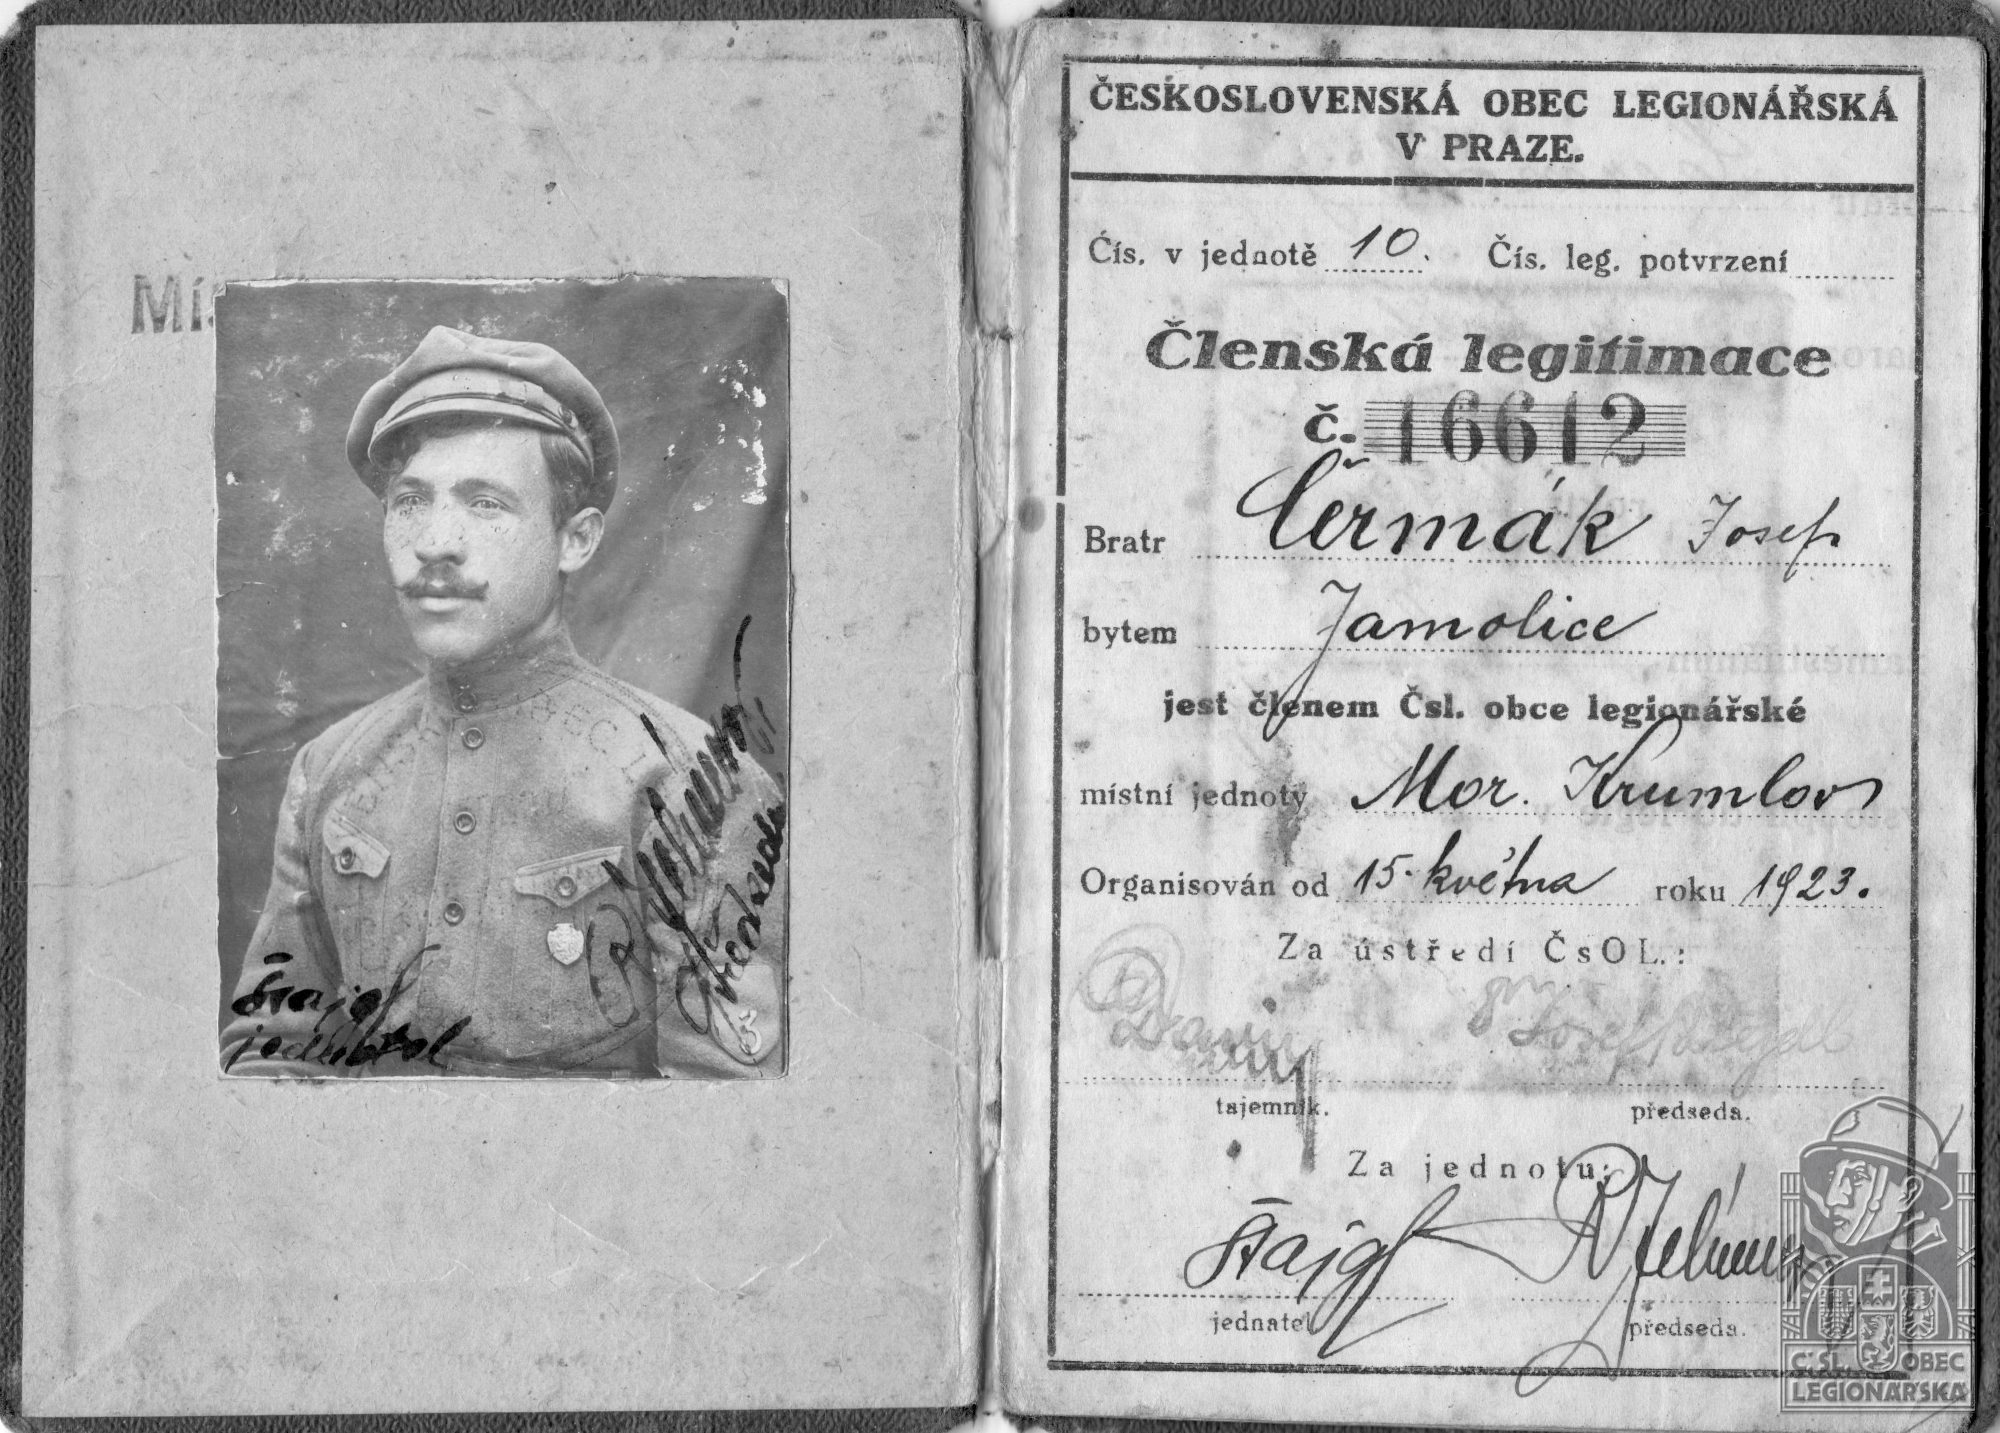 Mí
Štajgl
jednatel
předseda
ČESKOSLOVENSKÁ OBEC LEGIONÁŘSKÁ
V PRAZE.
Čís. v jednotě 10. Čís. leg. potvrzení
Členská legitimace
č. 16612
Bratr Čermák Josef
bytem Jamolice
jest členem Čsl. obce legionářské
místní jednoty Mor. Krumlov
Organisován od 15. května roku 1923.
Za ústředí ČsOL.:
Josef
tajemník. předseda.
Za jednotu:
Štajgl
jednatel předseda.
ČSL. OBEC
LEGIONÁŘSKÁ